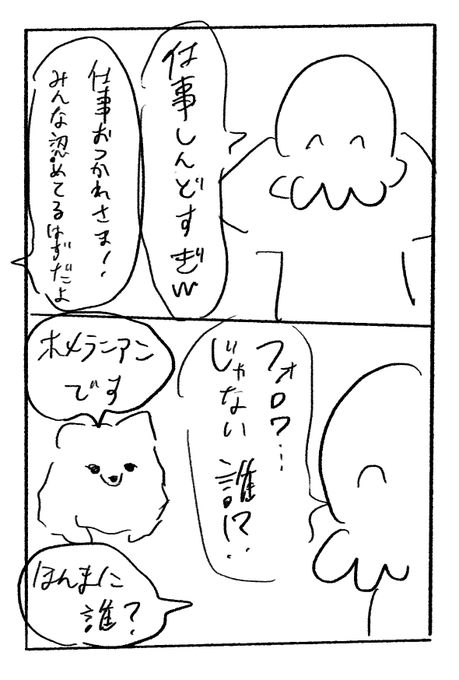 仕事しんどすぎw
仕事おつかれさま!
みんな認めてるはずだよ
フォロワ…
じゃない
誰!?…
ホメラニアン
です
ほんまに
誰?